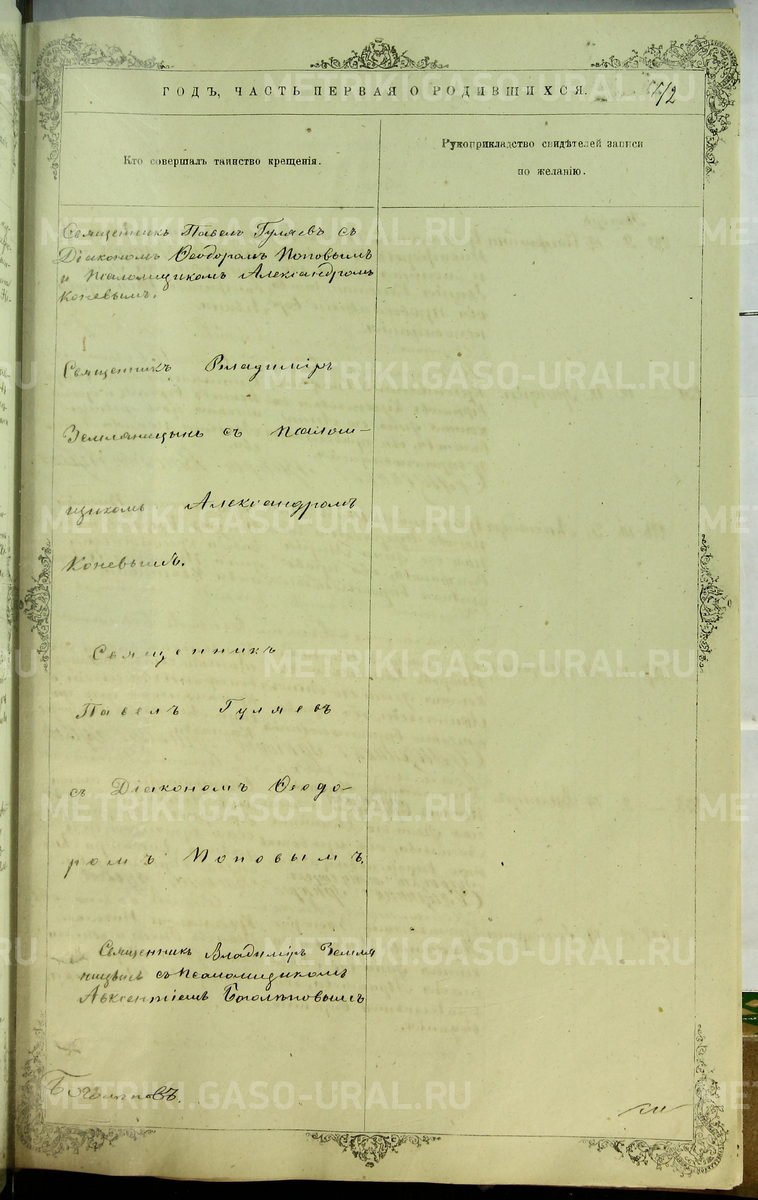 ГОДЪ, ЧАСТЬ ПЕРВАЯ О РОДИВШИХСЯ.
Кто совершалъ таинство крещенія.
Рукоприкладство свидѣтелей записи
по желанію.
Священникъ Павелъ Гуляевъ съ
Діакономъ Ѳеодоромъ Поповымъ
и Псаломщикомъ Александромъ
Коневымъ.
Священникъ Владиміръ
Земляницынъ съ Псалом-
щикомъ Александромъ
Коневымъ.
Священникъ
Павелъ Гуляевъ
съ Діакономъ Ѳеодо-
ромъ Поповымъ.
Священникъ Владиміръ Земля
ницынъ съ Псаломщикомъ
Авксентіемъ Боголѣповымъ
Боголѣповъ.
METRIKI.GASO-URAL.RU